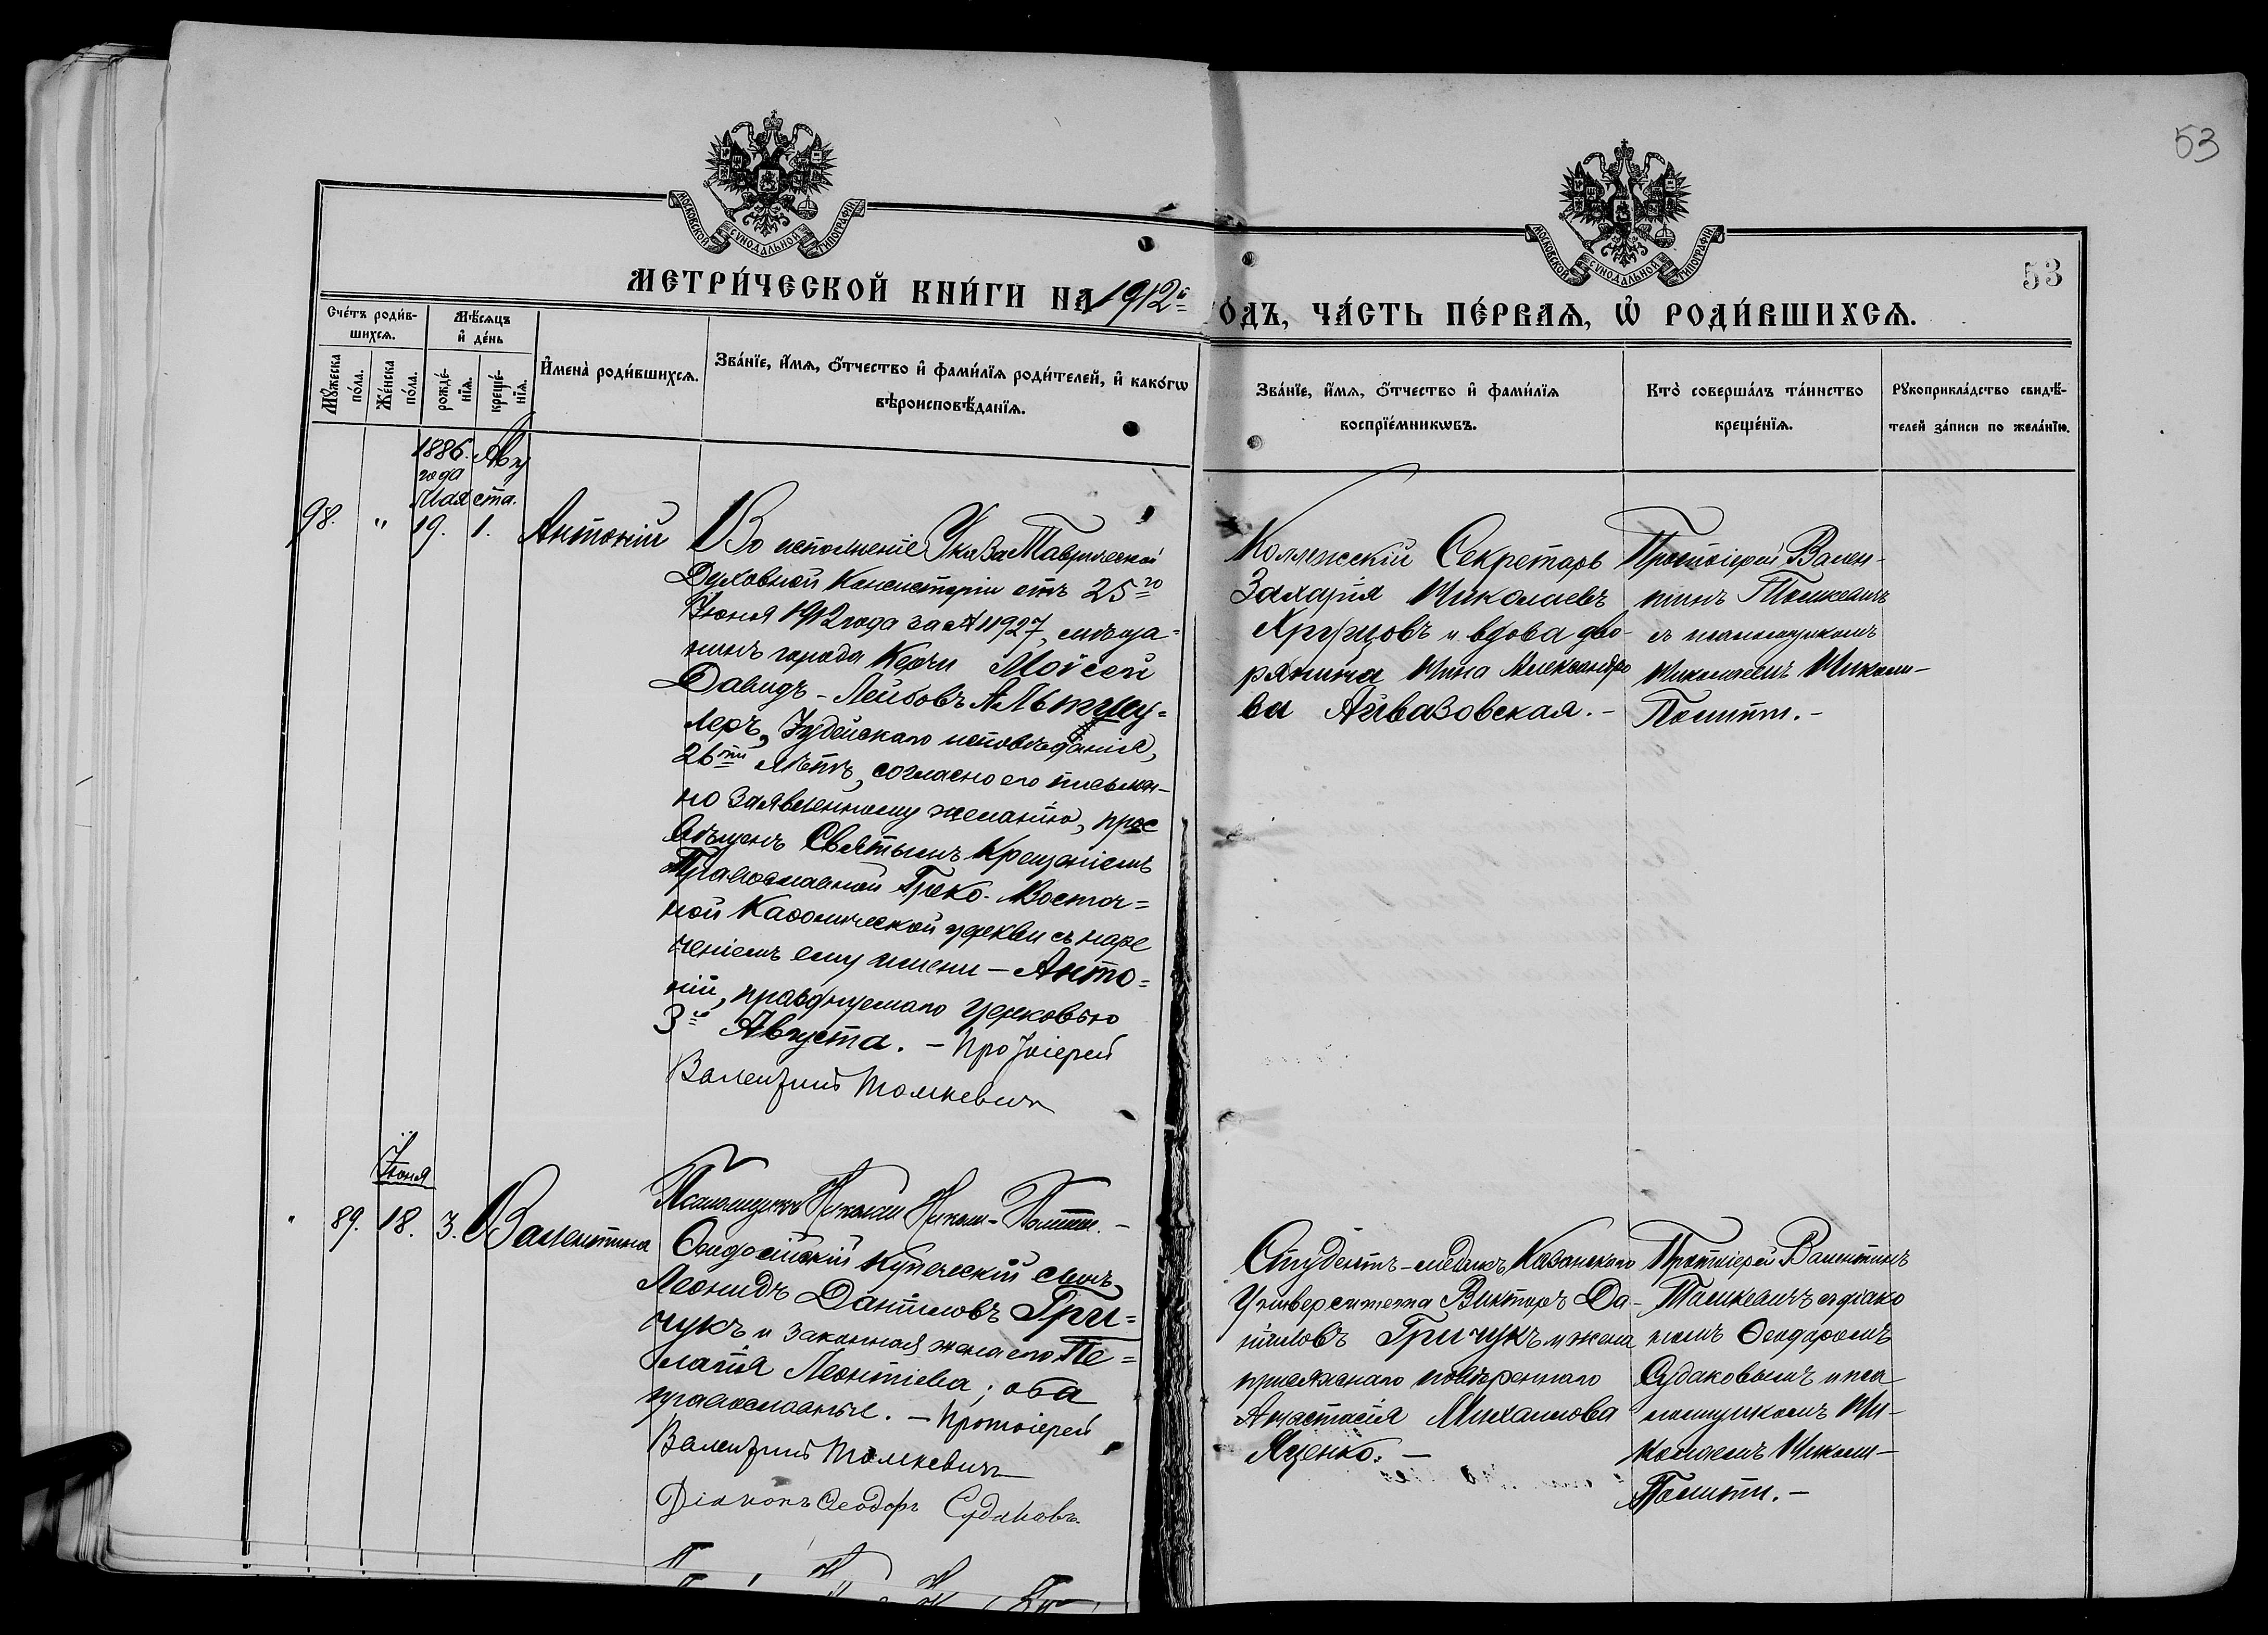 53
МОСКОВСКОЙ СѴНОДАЛЬНОЙ ТИПОГРАФІИ
МОСКОВСКОЙ СѴНОДАЛЬНОЙ ТИПОГРАФІИ
53
МЕТРИ́ЧЕСКОЙ КНИ́ГИ НА 1912й
ГО́ДЪ, ЧА́СТЬ ПЕ́РВАЯ, Ѡ РОДИ́ВШИХСЯ.
Сче́тъ роди́в-
шихся.
Мѣ́сяцъ
и де́нь
Му́жеска
по́ла.
Же́нска
по́ла.
рожде́-
нія.
креще́-
нія.
Имена̀ роди́вшихся.
Зва́нїе, и́мя, ѻ́тчество и фами́лїя роди́телей, и како́гѡ
вѣроисповѣ́данїя.
Зва́нїе, и́мя, ѻ́тчество и фами́лїя
воспрїе́мникѡвъ.
Кто̀ соверша́лъ та́инство
креще́нїя.
Рукоприкла́дство свидѣ́-
телей за́писи по жела́нїю.
1886 Авгу
года
Мая ста.
98. " 19. 1. Антоній
Во исполненіе Указа Таврической
Духовной Консисторіи отъ 25го
Іюня 1912 года за № 11927, мѣща-
нинъ города Керчи Моисей
Давидъ-Лейбовъ Альтшу-
леръ, Іудейскаго исповѣданія,
26ти лѣтъ, согласно его письмен-
но заявленному желанію, прос
вѣщенъ Святымъ Крещеніемъ
Православной Греко-Восточ=
ной Каѳолической церкви съ наре
ченіемъ ему имени – Анто=
ній, празднуемаго Церковью
3го Августа. – Протоіерей
Валентинъ Томкевичъ
Коллежскій Секретарь
Захарія Николаевъ
Хрущовъ и вдова дво-
рянина Нина Александро
ва Айвазовская. –
Протоіерей Вален-
тинъ Томкевичъ
съ псаломщикомъ
Николаемъ Николи-
Полити. –
Псаломщикъ Николай Николи-Полити. –
Іюня
" 89. 18. 3. Валентина
Ѳеодосійскій купеческій сынъ
Леонидъ Даніиловъ Гри=
чукъ и законная жена его Пе=
лагія Леонтіева; оба
православные. – Протоіерей
Валентинъ Томкевичъ
Діаконъ Ѳеодоръ Судаковъ.
Студентъ-медикъ Казанскаго
Университета Викторъ Да-
ніиловъ Гричукъ и жена
присяжнаго повѣреннаго
Анастасія Михаилова
Яценко. –
Протоіерей Валентинъ
Томкевичъ съ діако
номъ Ѳеодоромъ
Судаковымъ и пса
ломщикомъ Ни-
колаемъ Николи-
Полити. –